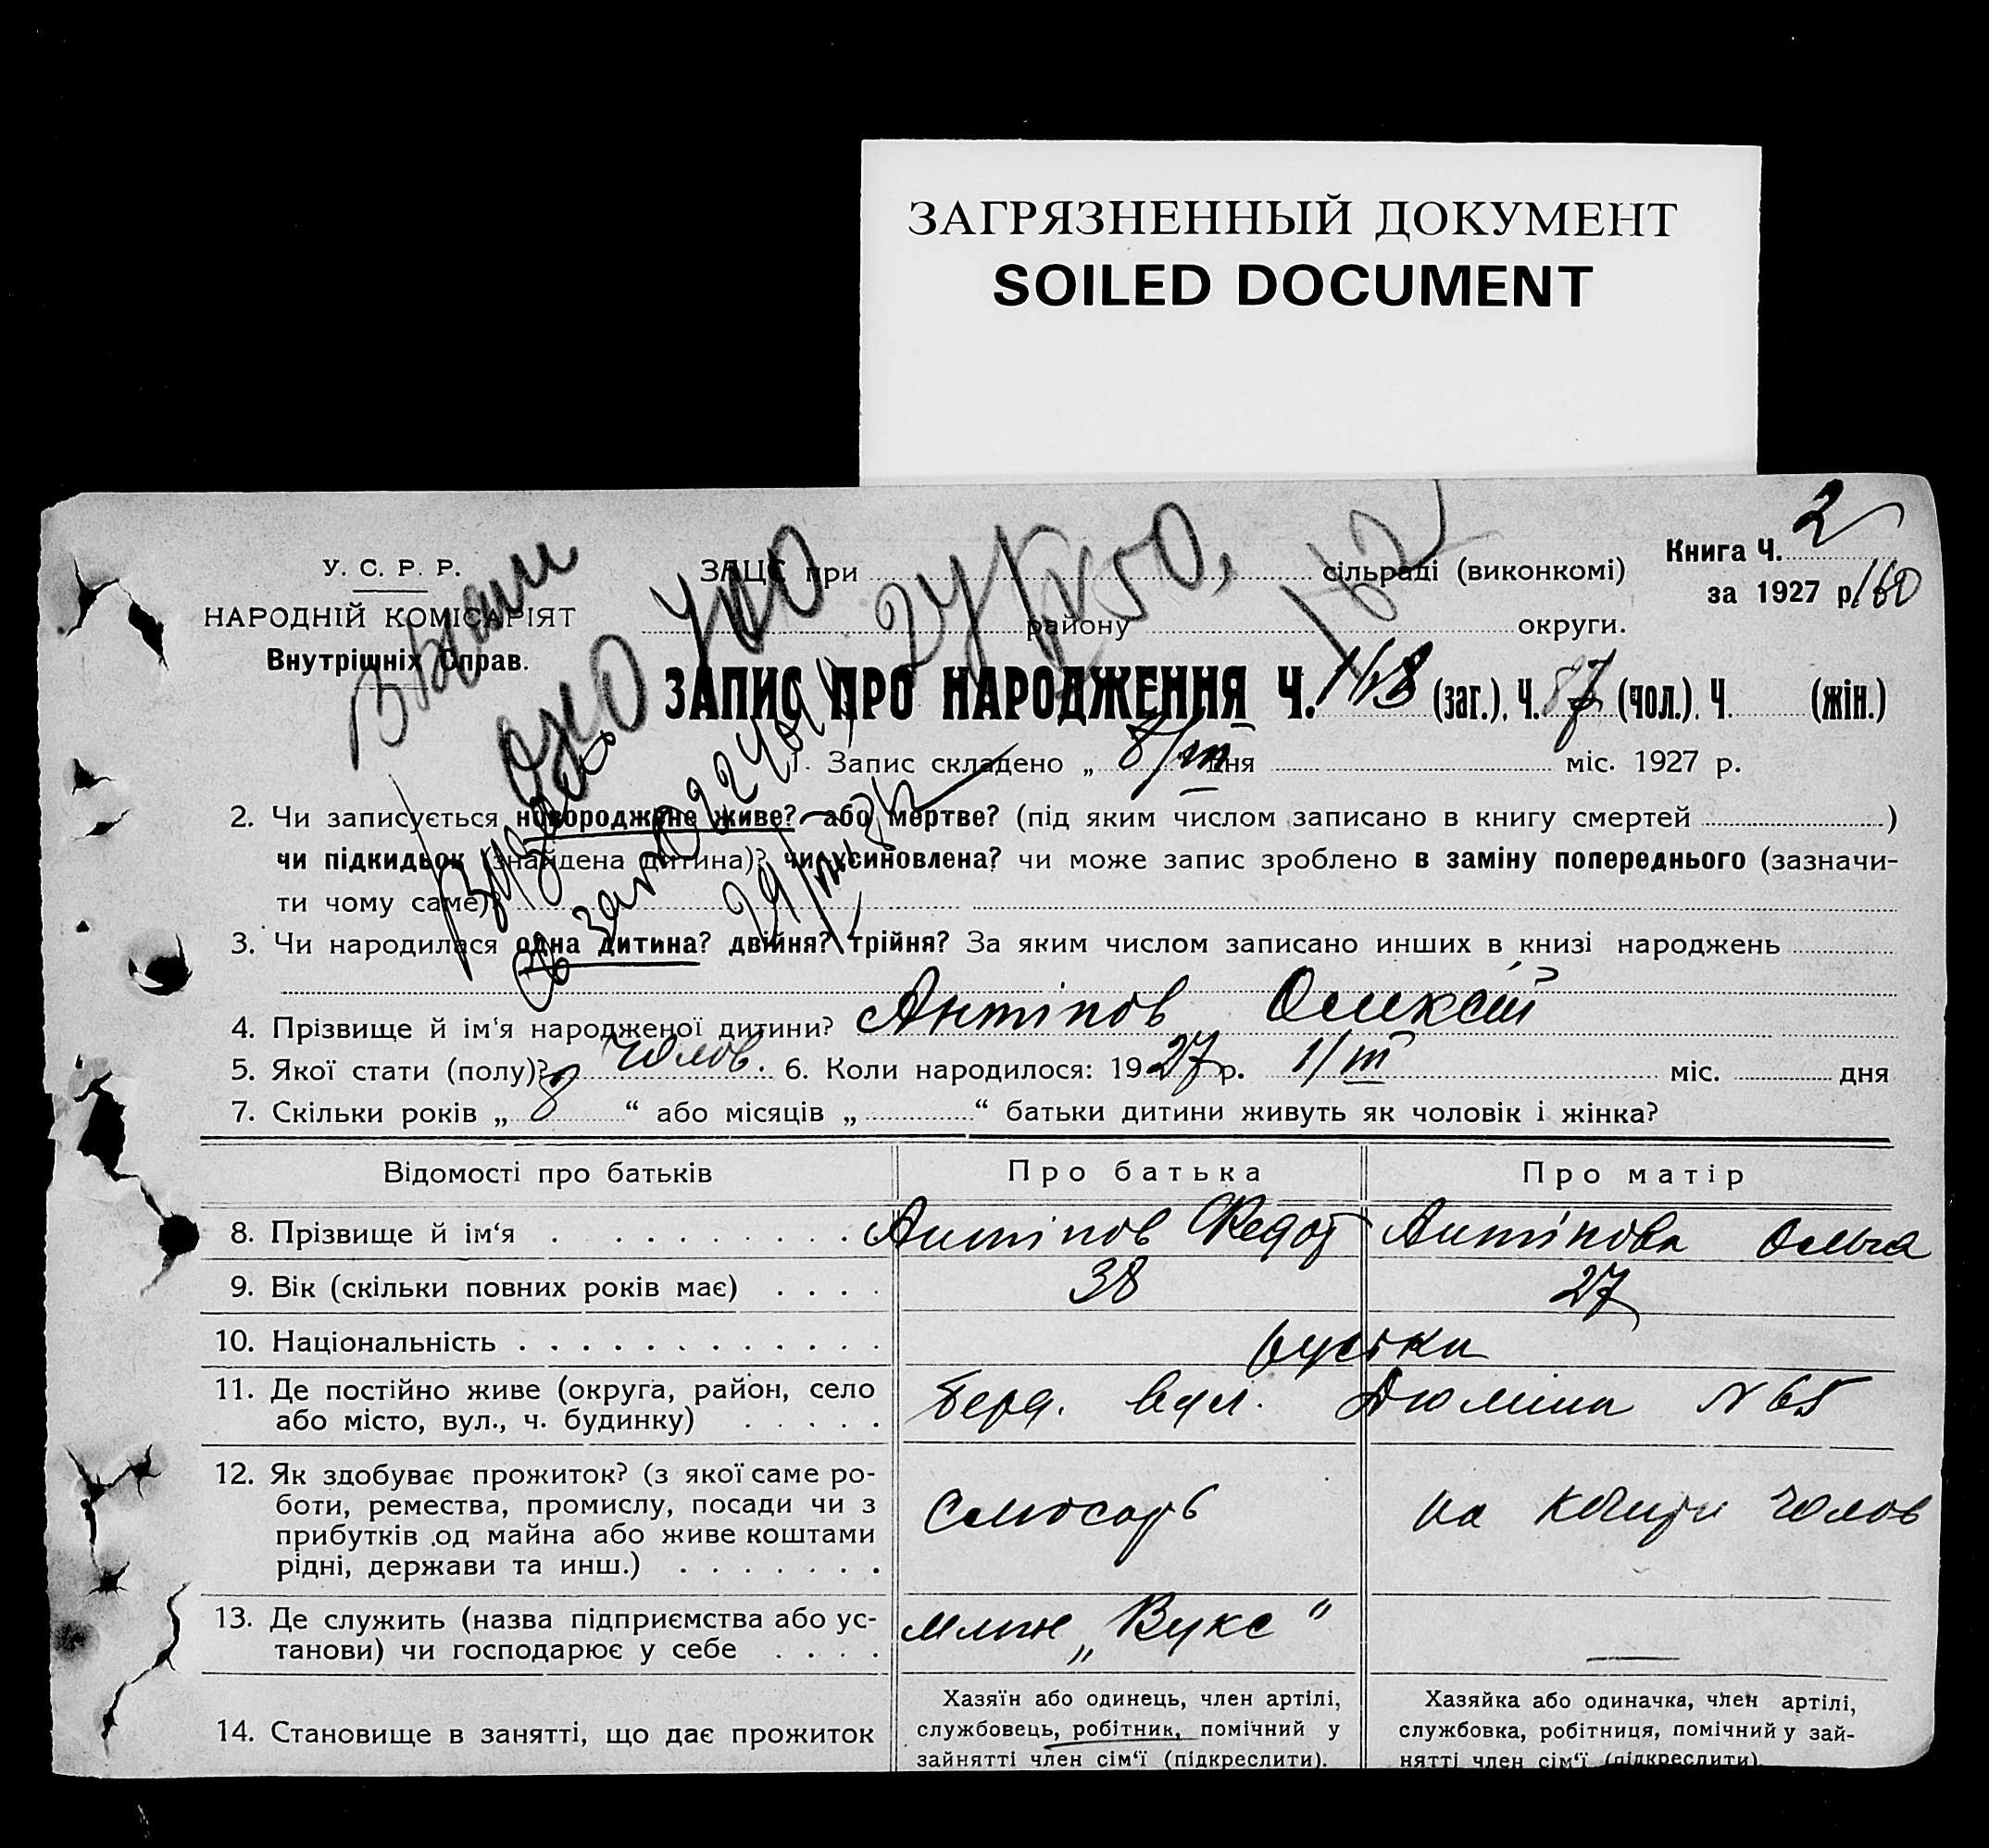 ЗАГРЯЗНЕННЫЙ ДОКУМЕНТ
SOILED DOCUMENT
Книга Ч. 2
за 1927 р. 160
У. С. Р. Р.
НАРОДНІЙ КОМІСАРІЯТ
Внутрішніх Справ.
ЗАЦС при сільраді (виконкомі)
району округи.
ЗАПИС ПРО НАРОДЖЕННЯ Ч. 168 (заг.), Ч. 87 (чол.), Ч. (жін.)
1. Запис складено „ 8/III дня міс. 1927 р.
2. Чи записується новороджене живе? або мертве? (під яким числом записано в книгу смертей )
чи підкидьок (знайдена дитина)? чи усиновлена? чи може запис зроблено в заміну попереднього (зазначи-
ти чому саме)?
3. Чи народилася одна дитина? двійня? трійня? За яким числом записано инших в книзі народжень
4. Прізвище й ім'я народженої дитини? Антіпов Олексій
5. Якої стати (полу)? чолов. 6. Коли народилося: 1927 р. 1/III міс. дня
7. Скільки років „ 8 “ або місяців „ “ батьки дитини живуть як чоловік і жінка?
Відомості про батьків Про батька Про матір
8. Прізвище й ім'я Антіпов Федот Антіпова Ольга
9. Вік (скільки повних років має) 38 27
10. Національність руськи
11. Де постійно живе (округа, район, село
або місто, вул., ч. будинку) Берд. вул. Дюміна N 65
12. Як здобуває прожиток? (з якої саме ро-
боти, ремества, промислу, посади чи з
прибутків од майна або живе коштами
рідні, держави та инш.) Слюсарь на кошти чолов
13. Де служить (назва підприємства або ус-
танови) чи господарює у себе млин „Вукс“
14. Становище в занятті, що дає прожиток
Хазяїн або одинець, член артілі,
службовець, робітник, помічний у
зайнятті член сім'ї (підкреслити).
Хазяйка або одиначка, член артілі,
службовка, робітниця, помічний у зай-
нятті член сім'ї (підкреслити).